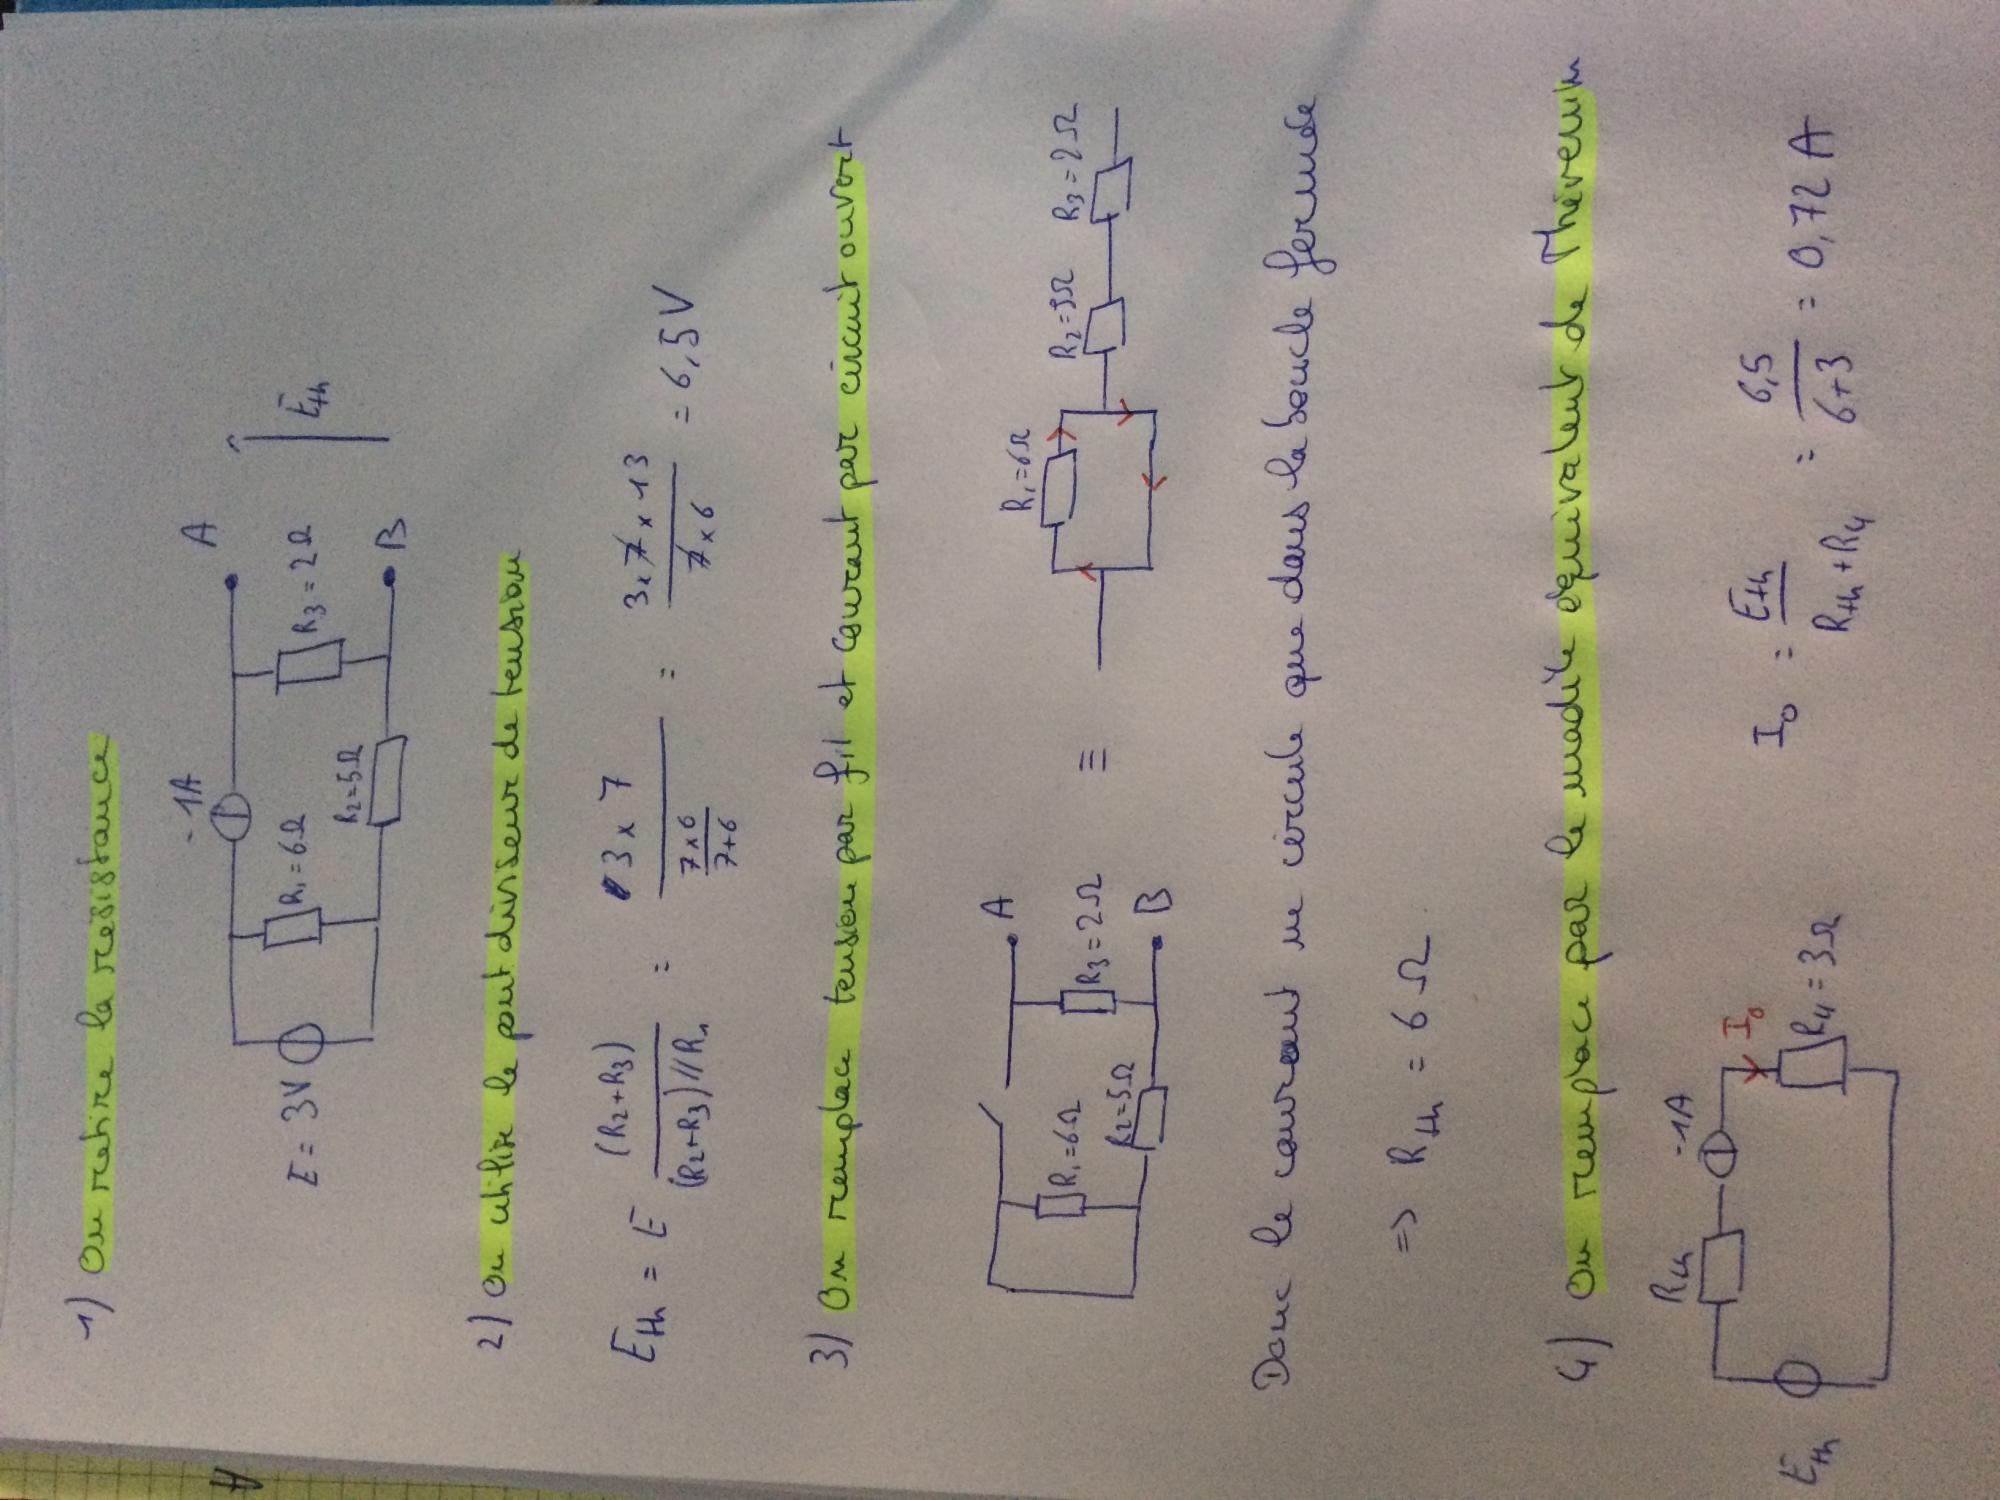 1) On retire la résistance
-1A
A
E = 3V
R₁=6Ω
R₃=2Ω
Eth
R₂=5Ω
B
2) On utilise le pont diviseur de tension
Eth = E (R₂+R₃) / (R₂+R₃)//R₁ = 3 x 7 / (7x6 / 7+6) = 3x7x13 / 7x6 = 6,5V
3) On remplace tension par fil et courant par circuit ouvert
A
R₁=6Ω
R₃=2Ω
R₂=5Ω
B
≡
R₁=6Ω
R₂=5Ω
R₃=2Ω
Donc le courant ne circule que dans la boucle fermée
=> Rth = 6 Ω
4) On remplace par le modèle équivalent de Thévenin
Rth
-1A
I₀
Eth
R₄=3Ω
I₀ = Eth / Rth+R₄ = 6,5 / 6+3 = 0,72 A
A